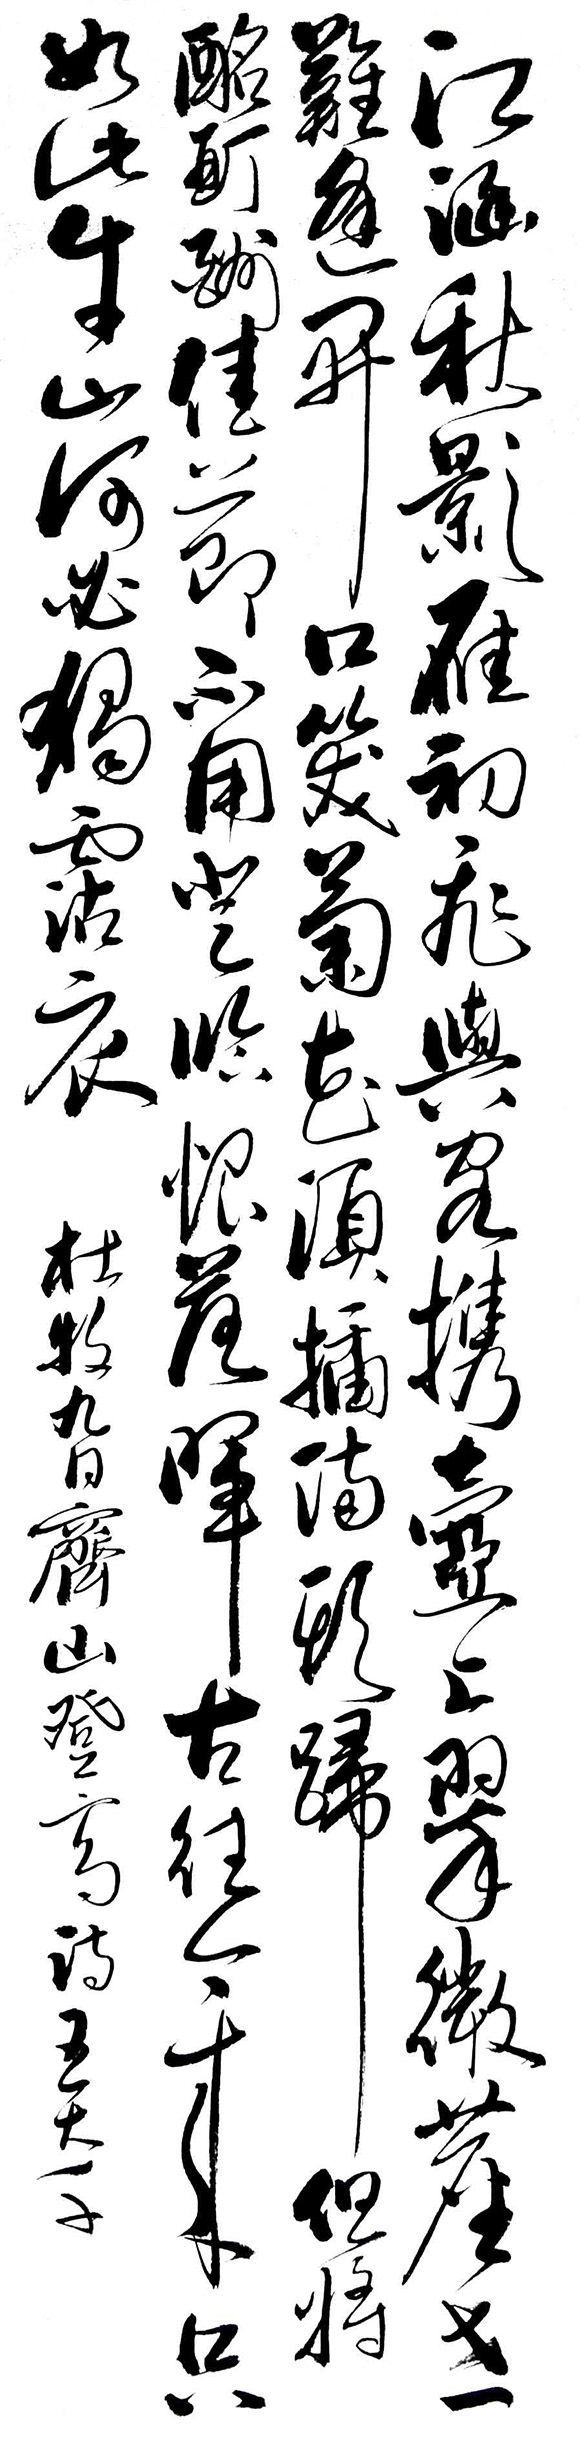 江涵秋影雁初飛與客携壺上翠微塵世
難逢開口笑菊花須插滿頭歸但將
酩酊酬佳節不用登臨恨落暉古往今來只
如此牛山何必獨霑衣 杜牧九日齊山登高詩